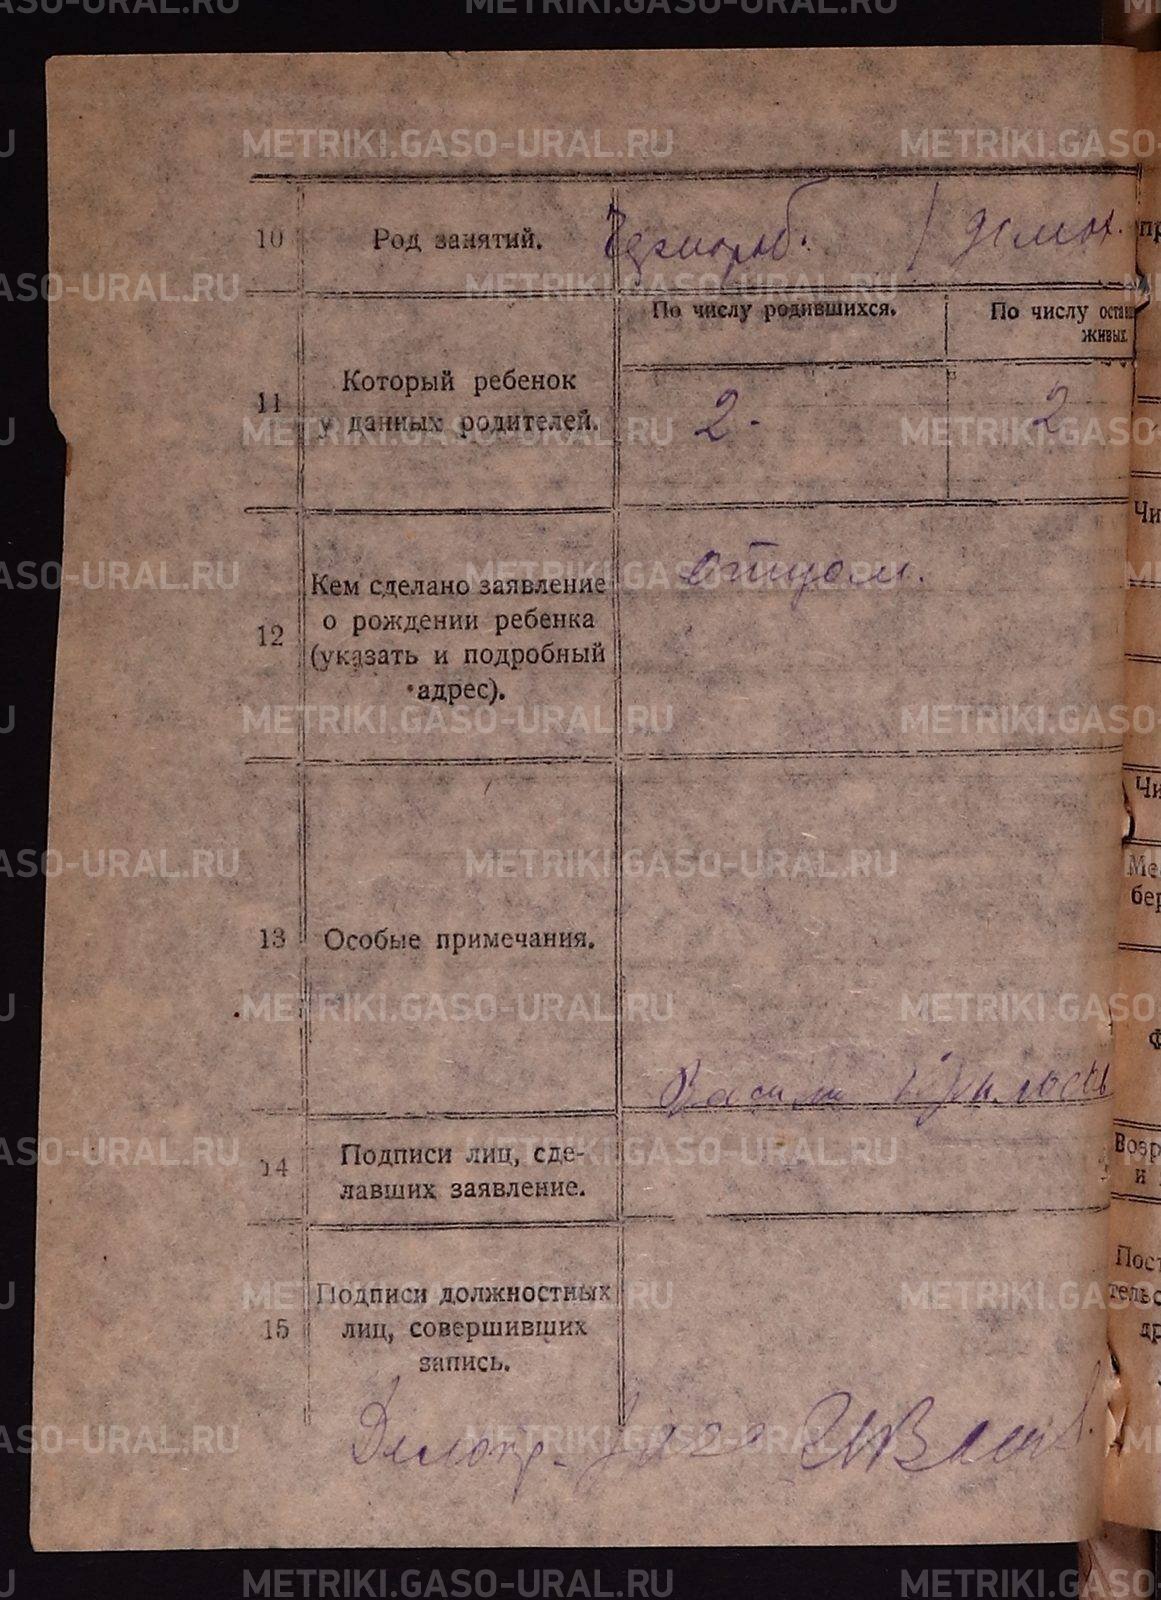 10 Род занятий. Чернораб. / домох.
11 Который ребенок
у данных родителей.
По числу родившихся. По числу остав
живых.
2. 2
12 Кем сделано заявление
о рождении ребенка
(указать и подробный
адрес).
отцом.
13 Особые примечания.
Васили
14 Подписи лиц, сде-
лавших заявление.
15 Подписи должностных
лиц, совершивших
запись.
Делопр.
пр
Чи
Чи
Ме
бер
Ф
Возр
и
Пост
тельс
др
METRIKI.GASO-URAL.RU